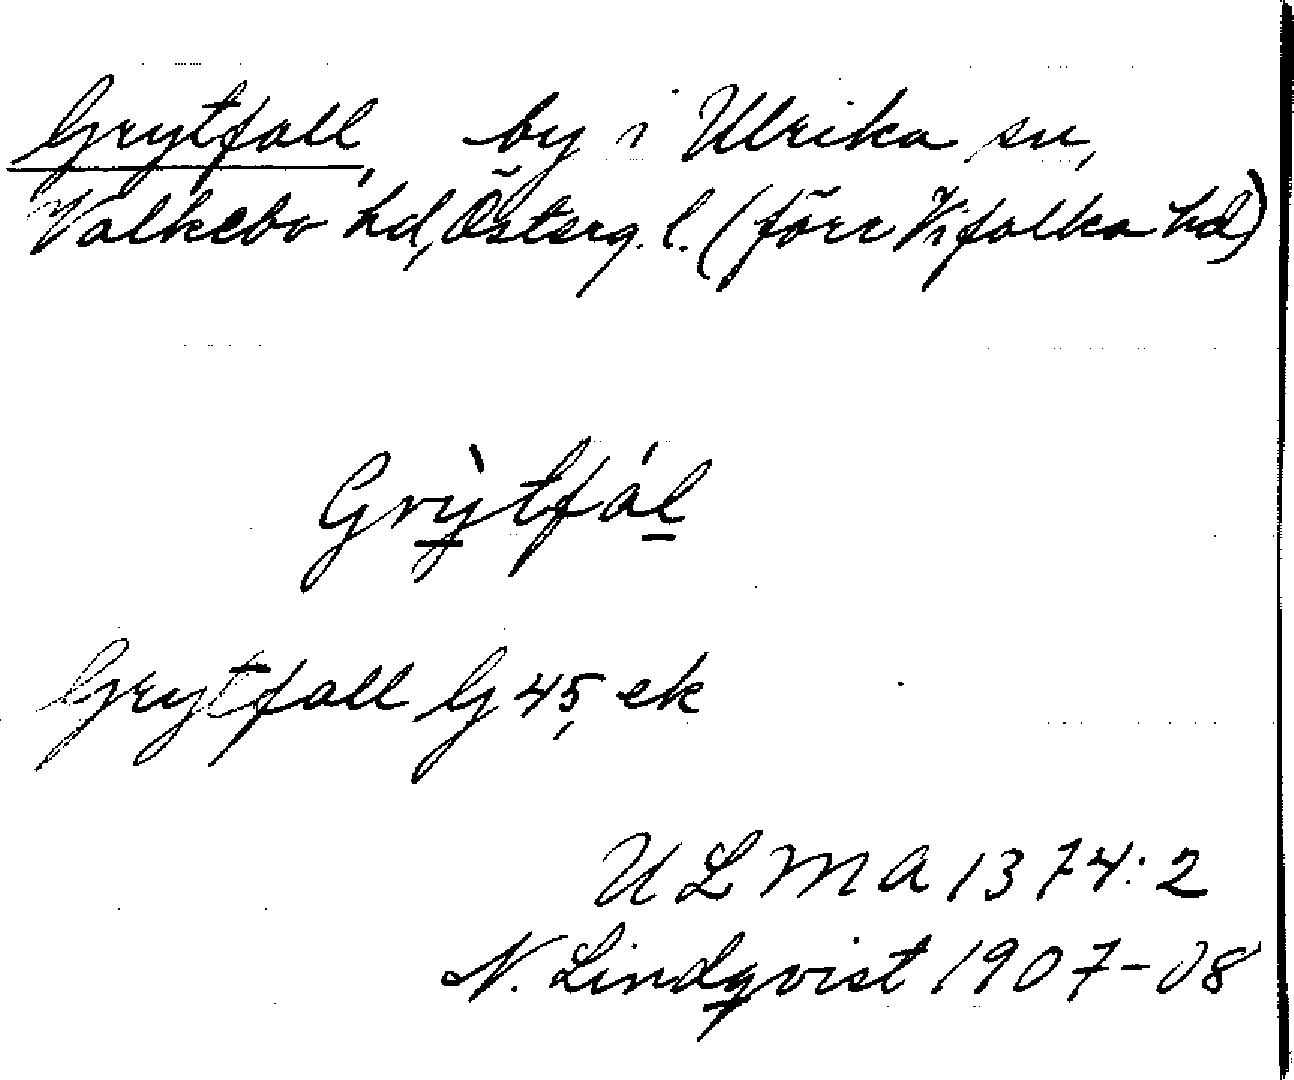 Grytfall, by i Ulrika sn,
Valkebo hd, Österg. l. (förr Vifolka hd)
Grỳtfál
Grytfall G 45, ek
ULMA 1374:2
N. Lindqvist 1907-08